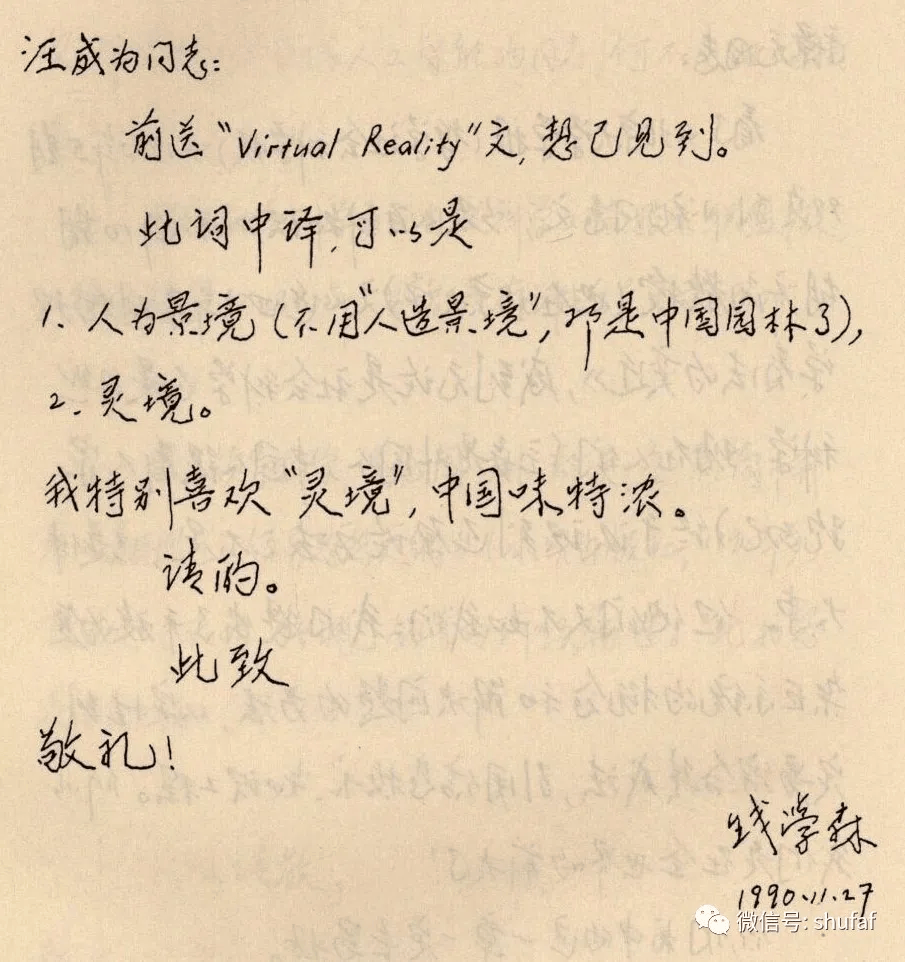 汪成为同志：
前送“Virtual Reality”文，想已见到。
此词中译，可以是
1. 人为景境（不用“人造景境”，那是中国园林了），
2. 灵境。
我特别喜欢“灵境”，中国味特浓。
请酌。
此致
敬礼！
钱学森
1990.11.27
微信号: shufaf